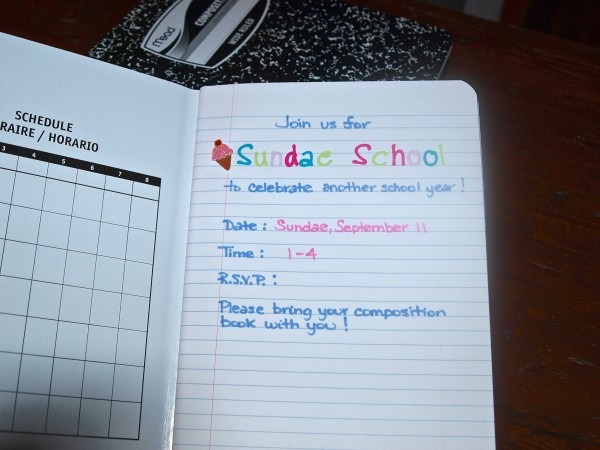 Mead
COMPOSITION
WIDE RULED
SCHEDULE
RAIRE / HORARIO
3 4 5 6 7 8
Join us for
Sundae School
to celebrate another school year!
Date: Sundae, September 11
Time: 1-4
R.S.V.P.:
Please bring your composition
book with you!